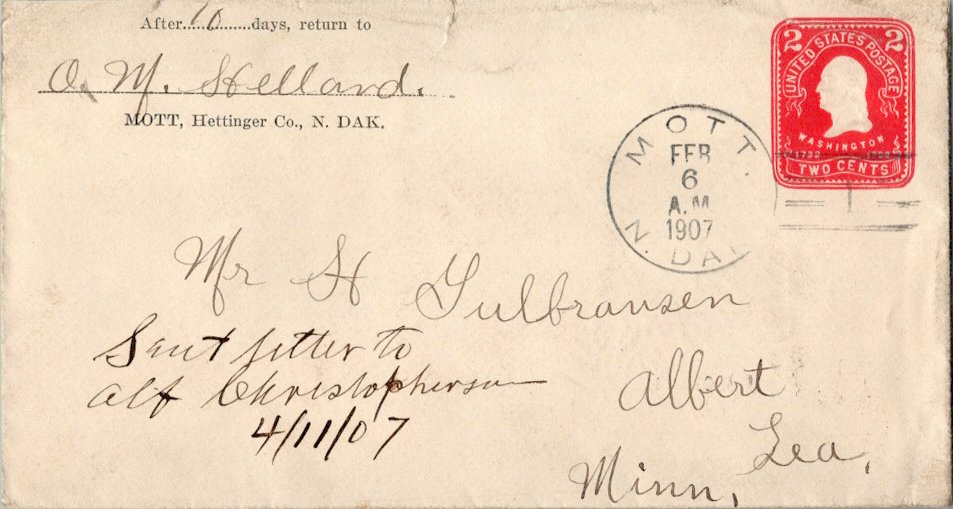 After....10....days, return to
O. M. Helland.
MOTT, Hettinger Co., N. DAK.
2 2
UNITED STATES POSTAGE
WASHINGTON
1732
TWO CENTS
MOTT.
FEB
6
A.M
1907
N. DAK
Mr H Gulbransen
Sent letter to
Alf Christopherson
4/11/07
Albert
Lea,
Minn,